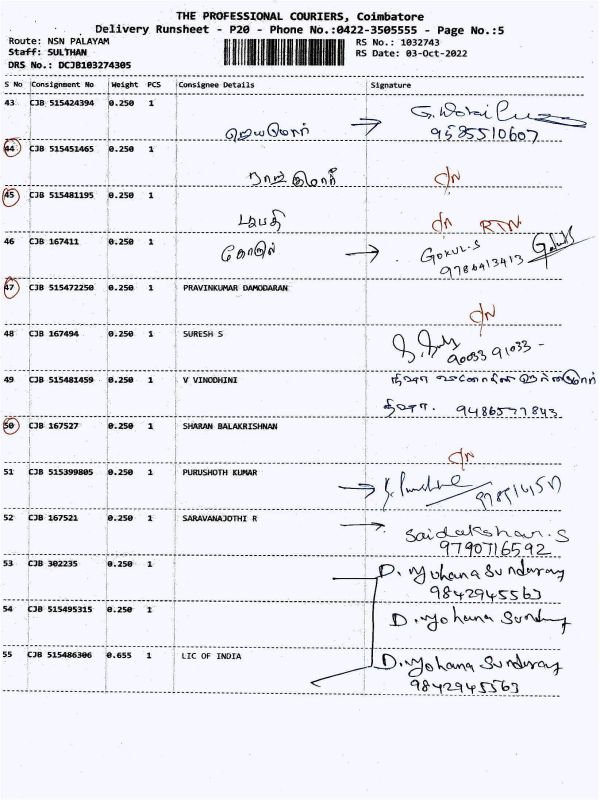 THE PROFESSIONAL COURIERS, Coimbatore
Delivery Runsheet - P20 - Phone No.:0422-3505555 - Page No.:5
Route: NSN PALAYAM RS No.: 1032743
Staff: SULTHAN RS Date: 03-Oct-2022
DRS No.: DCJB103274305
S No Consignment No Weight PCS Consignee Details Signature
43 CJB 515424394 0.250 1
9585510607
44 CJB 515451465 0.250 1
45 CJB 515481195 0.250 1
RTN
46 CJB 167411 0.250 1 கோகுல் GOKUL.S
9786413413
47 CJB 515472250 0.250 1 PRAVINKUMAR DAMODARAN
48 CJB 167494 0.250 1 SURESH S
90033 91033 -
49 CJB 515481459 0.250 1 V VINODHINI
9486577843
50 CJB 167527 0.250 1 SHARAN BALAKRISHNAN
51 CJB 515399805 0.250 1 PURUSHOTH KUMAR
52 CJB 167521 0.250 1 SARAVANAJOTHI R Saidakshan.S
9790716592
53 CJB 302235 0.250 1 D. Yohana Sunderaj
9842945563
54 CJB 515495315 0.250 1 D. Yohana
55 CJB 515486306 0.655 1 LIC OF INDIA D. Yohana Sunderaj
9842945563